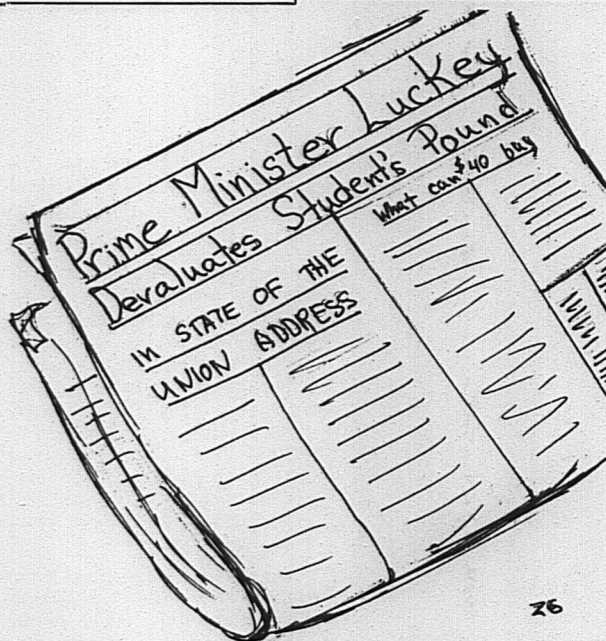 Prime Minister Luckey
Devaluates Student's Pound
IN STATE OF THE
UNION ADDRESS
What can $40 buy
26